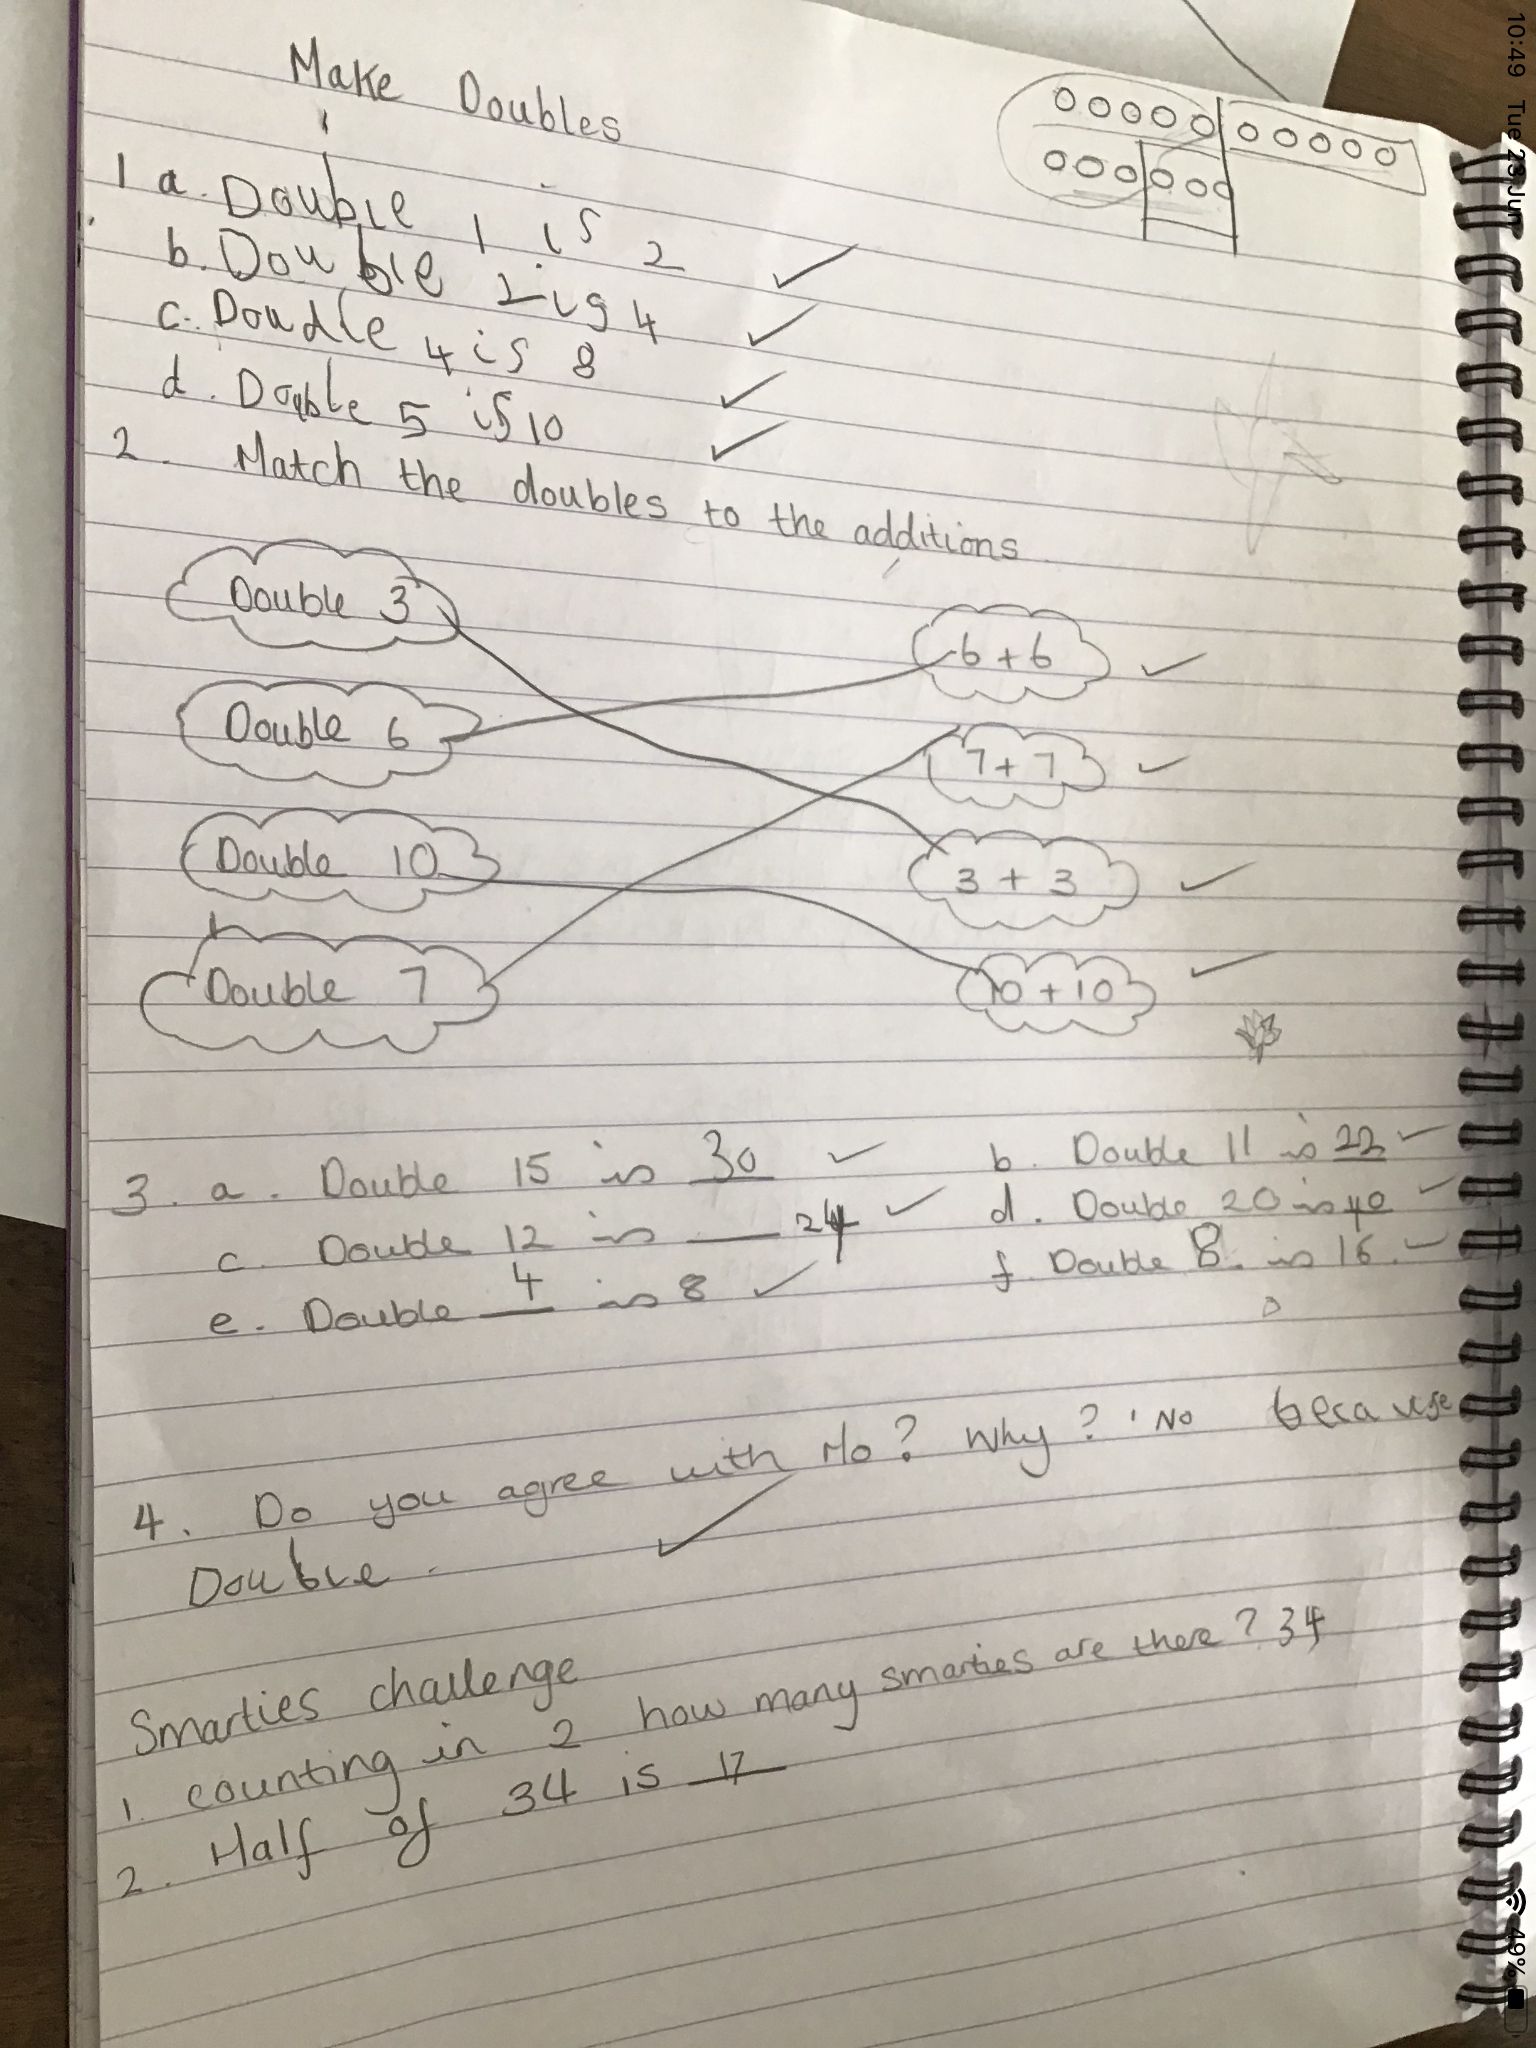 Make Doubles
1 a. Double 1 is 2
b. Double 2 is 4
c. Doudle 4 is 8
d. Double 5 is 10
2. Match the doubles to the additions
Double 3
6 + 6
Double 6
7 + 7
Double 10
3 + 3
Double 7
10 + 10
3. a. Double 15 is 30
b. Double 11 is 22
c. Double 12 is ___ 24
d. Double 20 is 40
e. Double 4 is 8
f. Double 8 is 16
4. Do you agree with Mo? Why? No because
Double.
Smarties challenge
1. counting in 2 how many smarties are there? 34
2. Half of 34 is 17
10:49 Tue 23 Jun
49%